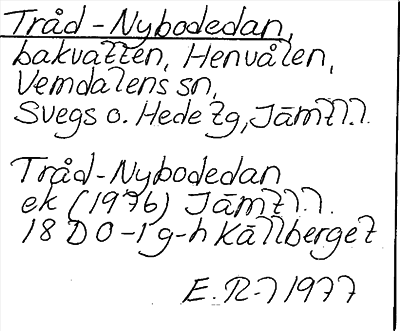 Tråd-Nybodedan,
bakvatten, Henvålen,
Vemdalens sn,
Svegs o. Hede tg, Jämtl.
Tråd-Nybodedan
ek (1976) Jämtl.
18 D 0-1 g-h Källberget
E. R-7 1977